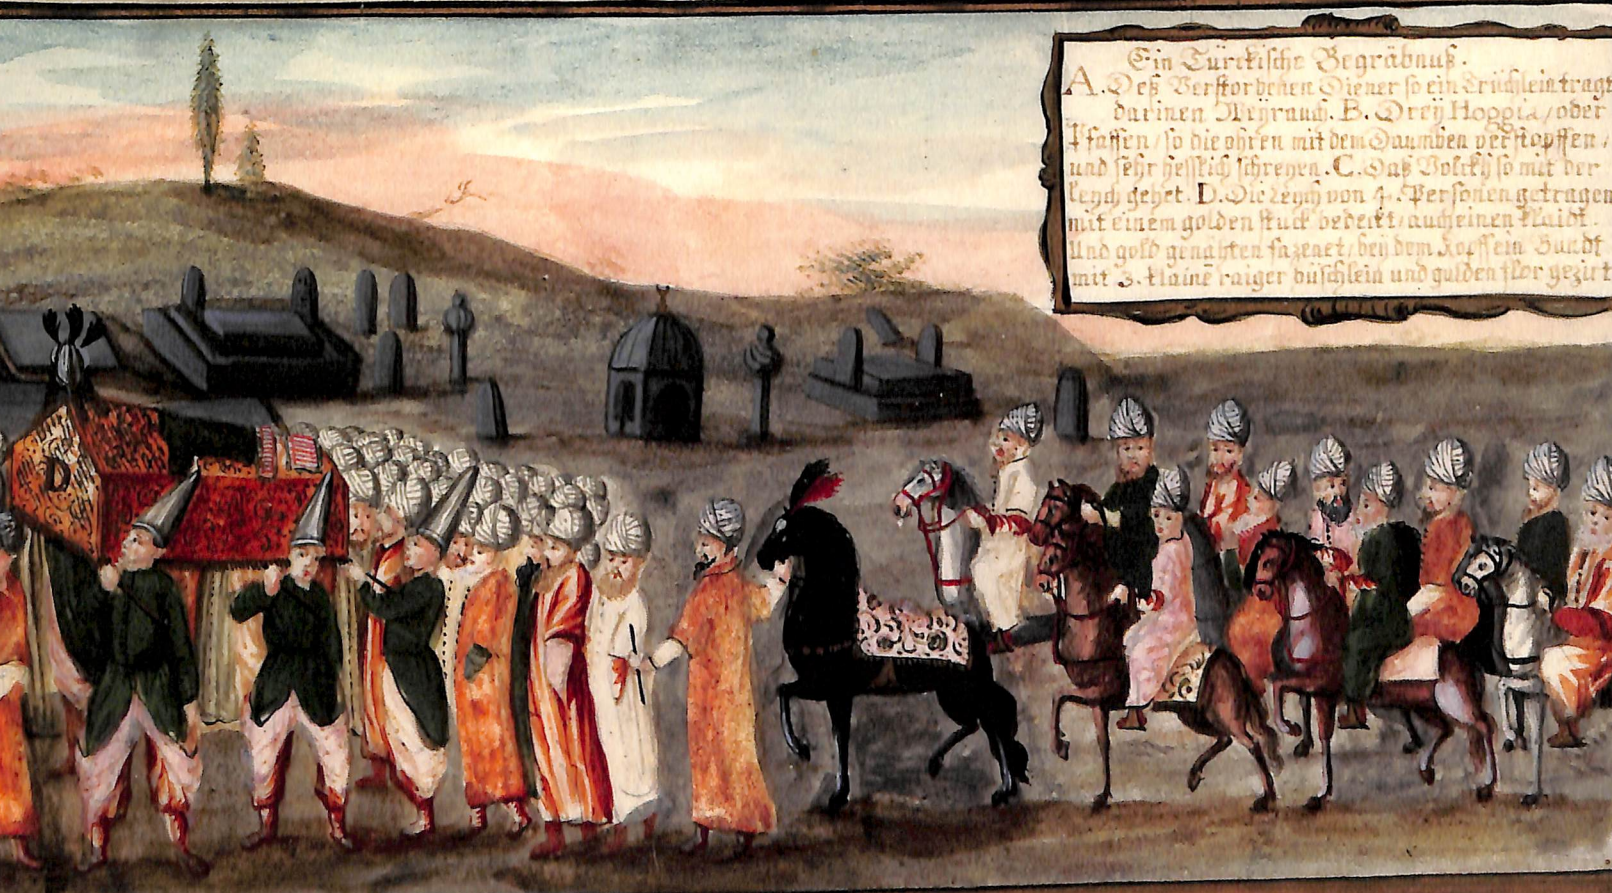 Ein Türckische Begräbnuß.
A. Deß Verstorbenen Diener so ein Trüchlein tragt
darinen Weyrauch. B. Drey Hoggia / oder
Pfaffen / so die ohren mit dem Daumben verstopffen /
und sehr hesslich schreyen. C. Das Volckh so mit der
Leych gehet. D. Die Leych von 4. Personen getragen
mit einem golden stuck bedeckt / auch einen Klaidt
und gold genähten / bey dem Kopff ein Bundt
mit 3. klaine raiger büschlein und gulden flor geziert
D